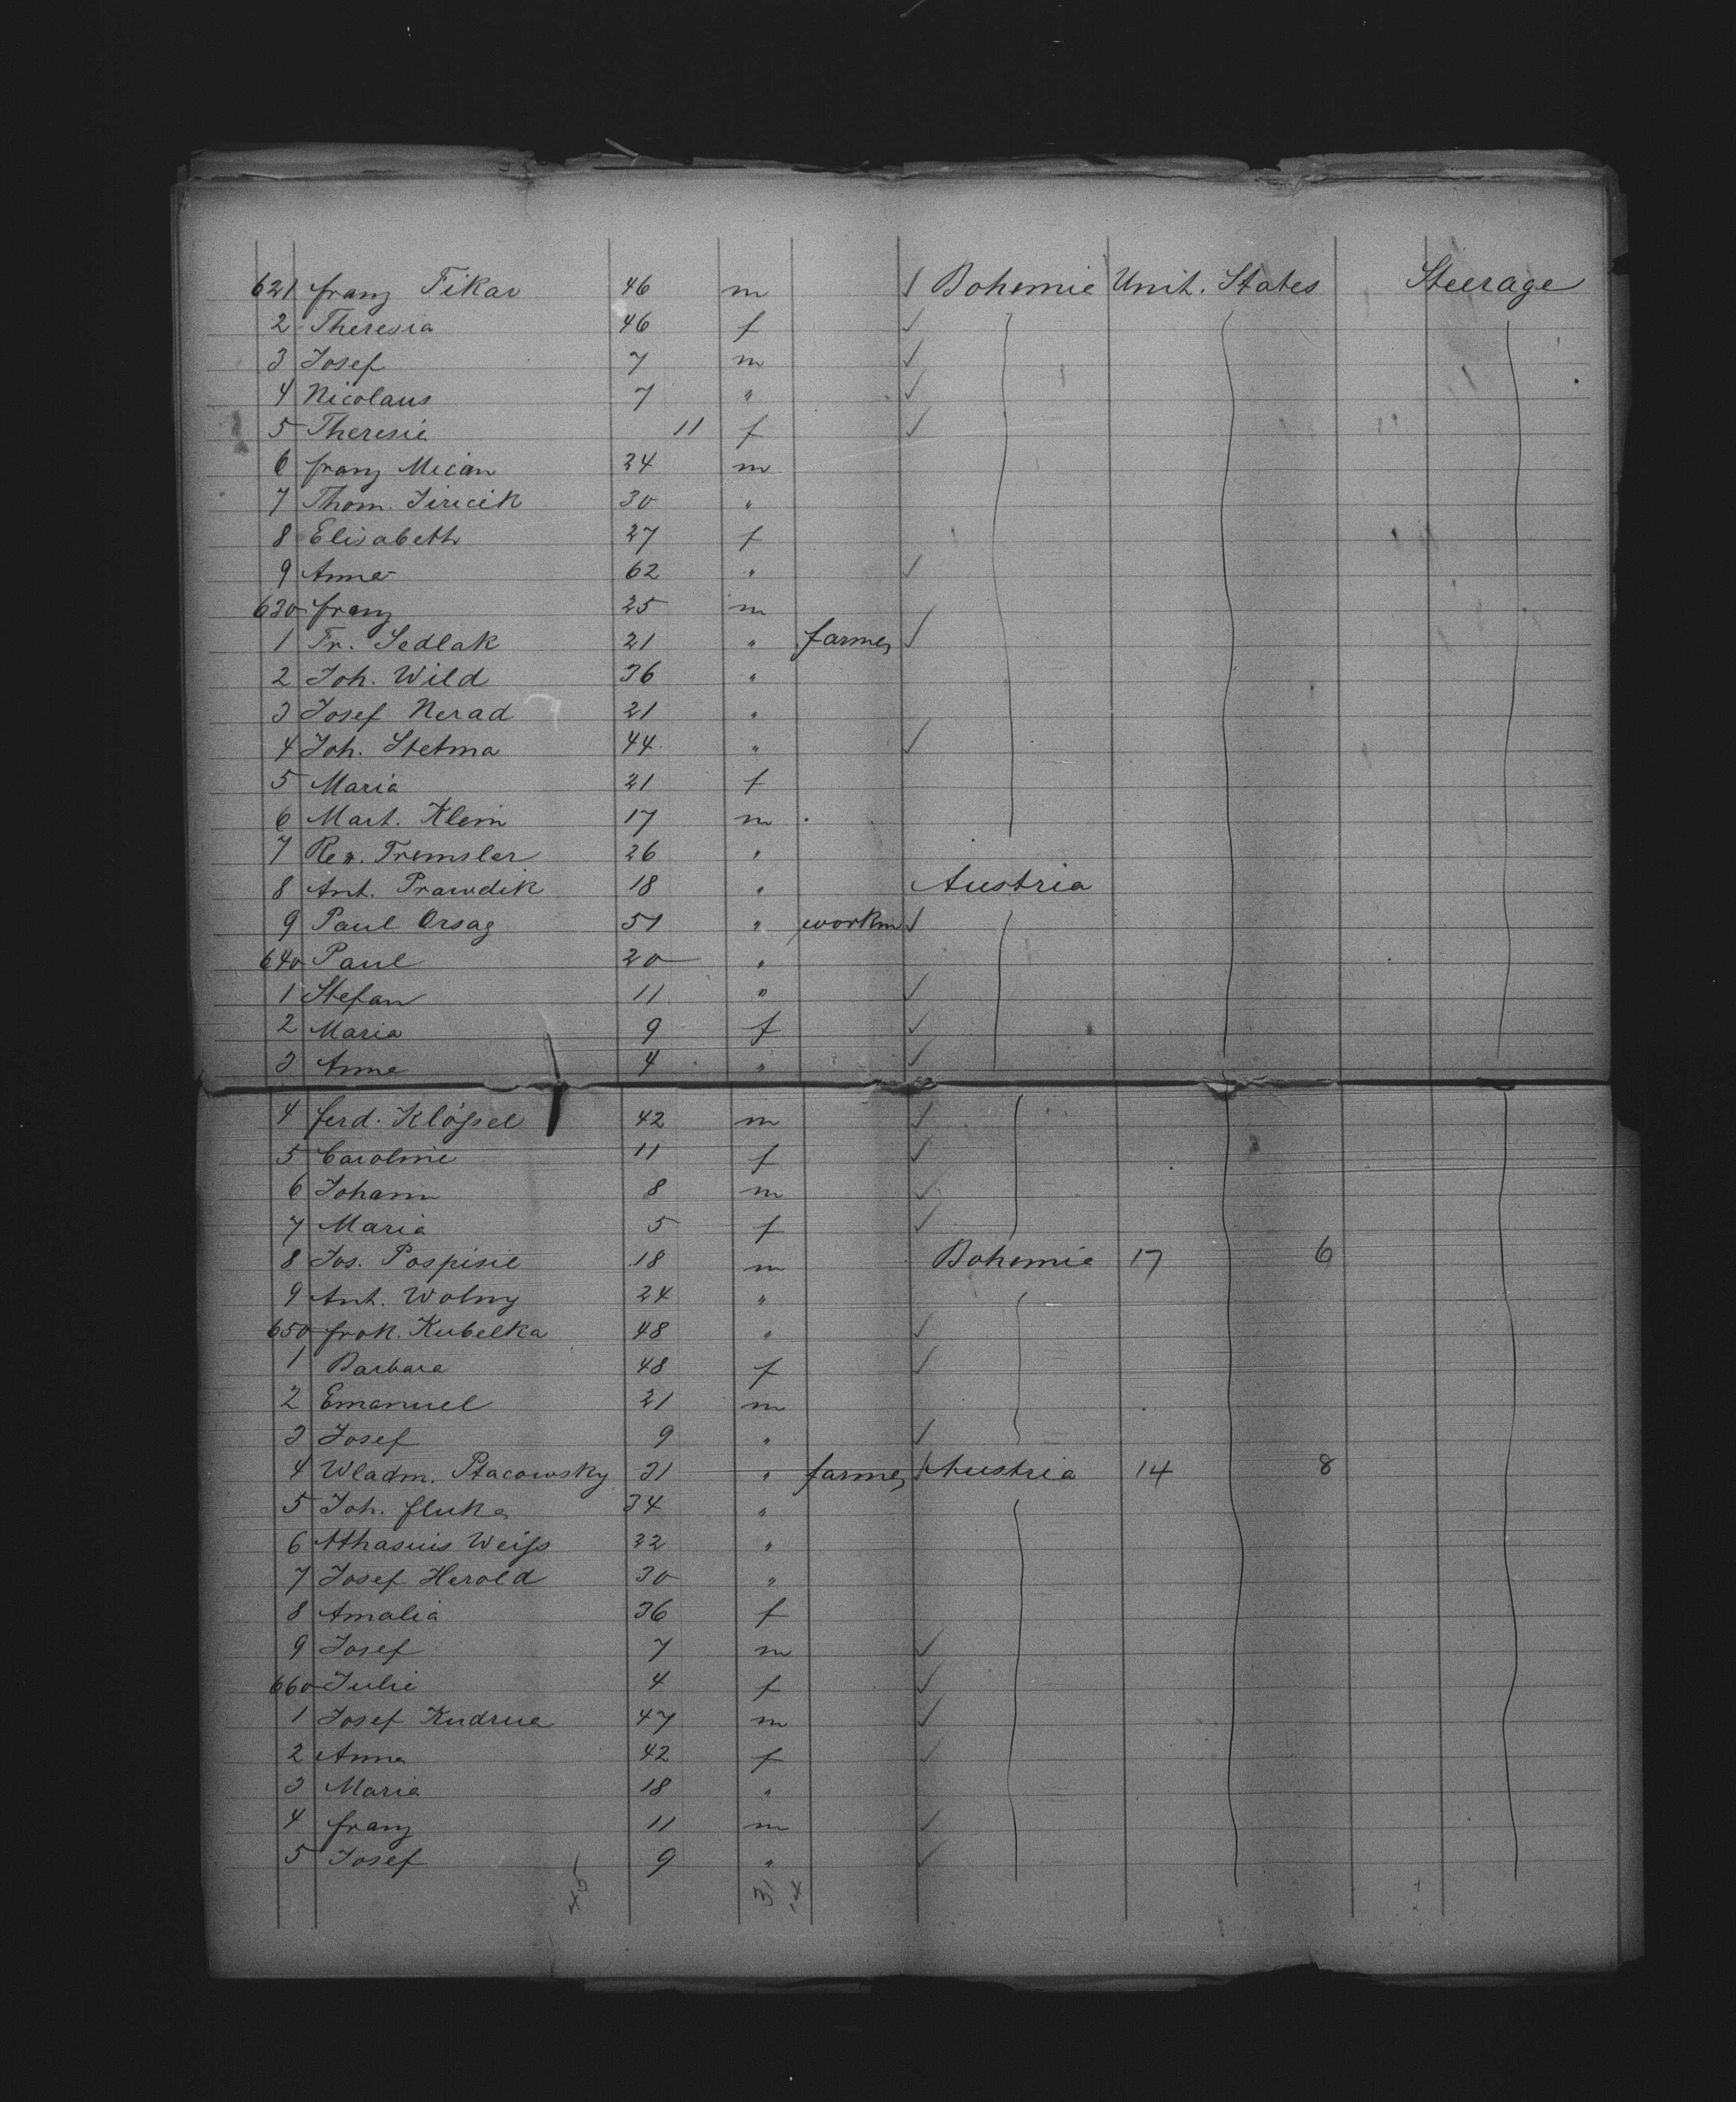 621 Franz Fikar 46 m Bohemia Unit. States Steerage
2 Theresia 46 f
3 Josef 7 m
4 Nicolaus 7 "
5 Theresia 11 f
6 Franz Mican 24 m
7 Thom. Jiricik 30 "
8 Elisabeth 27 f
9 Anna 62 "
630 Franz 25 m
1 Fr. Sedlak 21 " farmer
2 Joh. Wild 36 "
3 Josef Nerad 21 "
4 Joh. Stetma 44 "
5 Maria 21 f
6 Mart. Klein 17 m
7 Tremsler 26 "
8 Ant. Prawdik 18 " Austria
9 Paul Orsag 51 " workm
640 Paul 20 "
1 Stefan 11 "
2 Maria 9 f
3 Anna 4 "
4 Ferd. Klößel 42 m
5 Caroline 11 f
6 Johann 8 m
7 Maria 5 f
8 Jos. Pospisil 18 m Bohemia 17 6
9 Ant. Wolny 24 "
650 Prok. Kubelka 48 "
1 Barbara 48 f
2 Emanuel 21 m
3 Josef 9 "
4 Wladm. Ptacowsky 31 " farmer Austria 14 8
5 Joh. Fluka 34 "
6 Athasius Weiß 22 "
7 Josef Herold 30 "
8 Amalia 36 f
9 Josef 7 m
660 Julie 4 f
1 Josef Kudrna 47 m
2 Anna 42 f
3 Maria 18 "
4 Franz 11 m
5 Josef 9 "
45 31 14